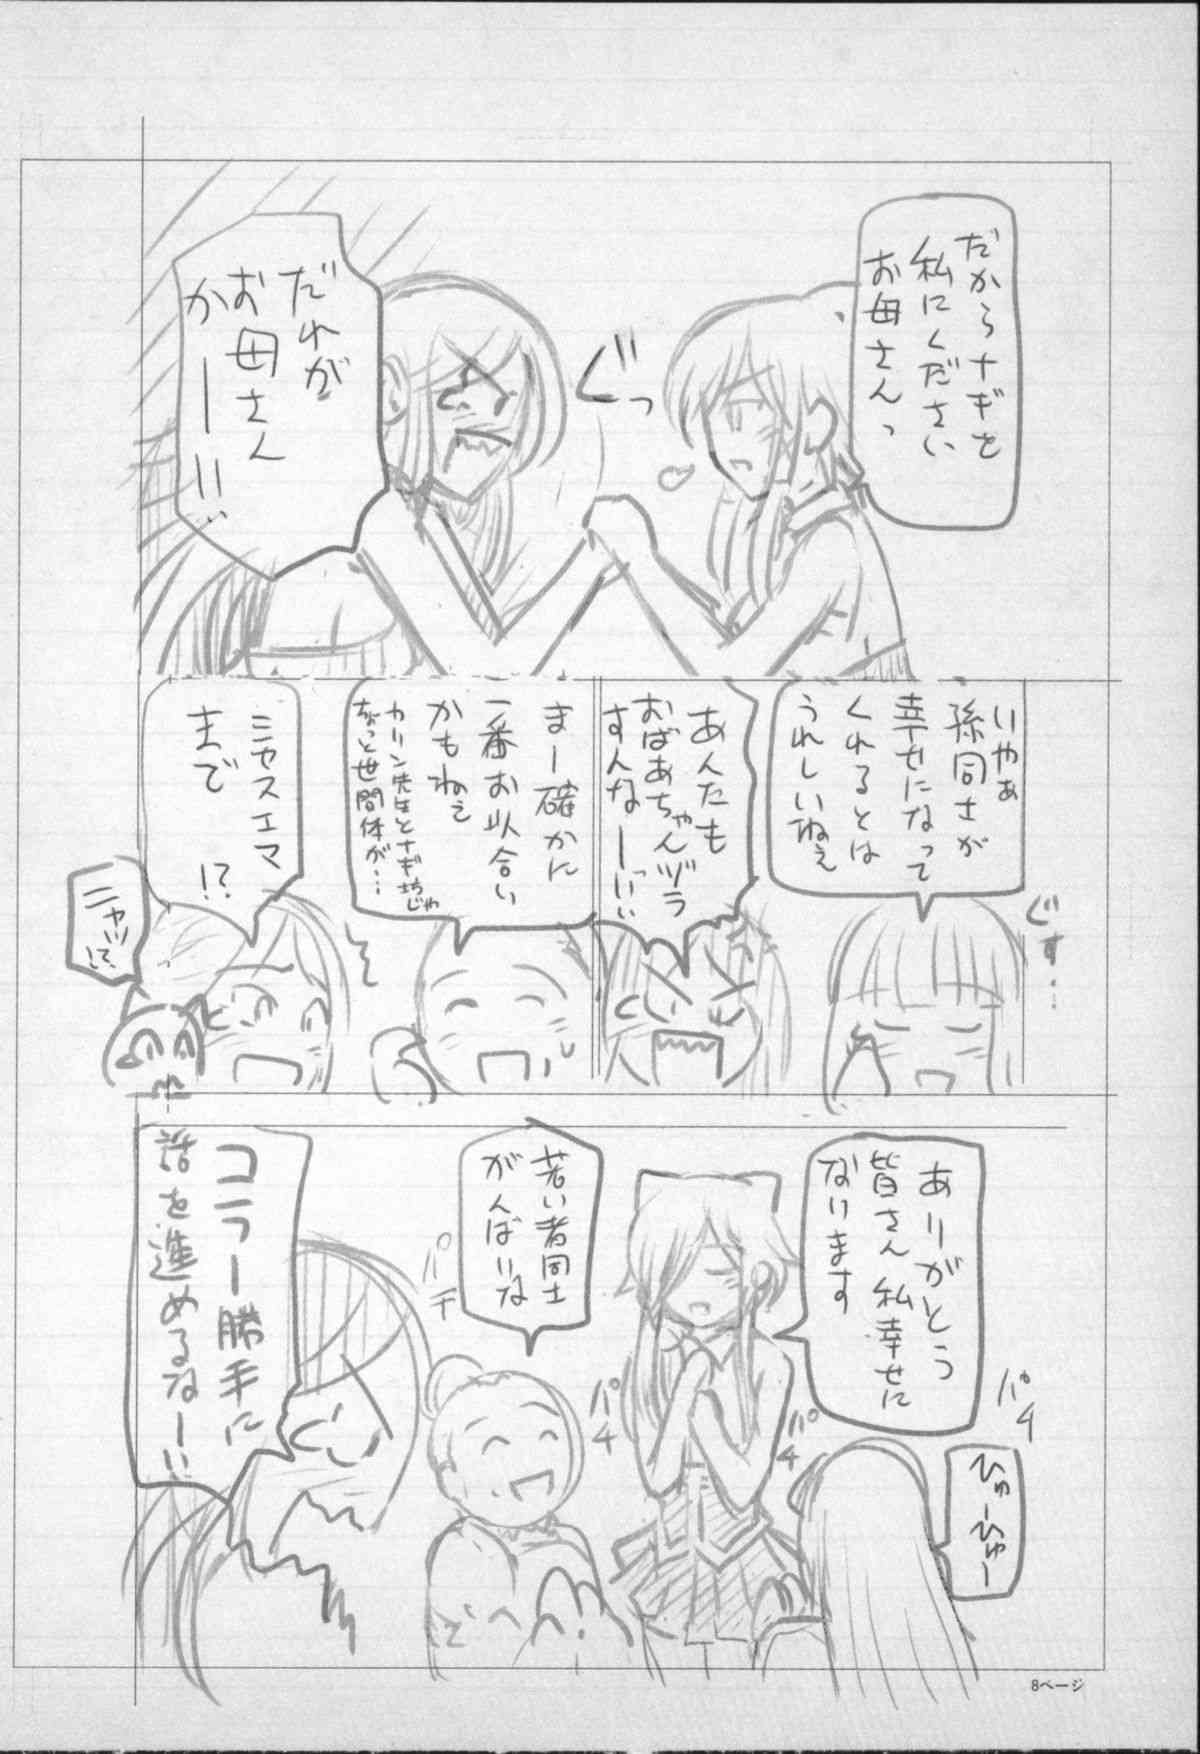 だからナギを
私にください
お母さんっ
ぐっ
だれが
お母さん
かーーい!!
いやぁ
孫同士が
幸せになって
くれるとは
うれしいねぇ
ぐす…
あんたも
おばあちゃんヅラ
すんなーっ!!
まー確かに
一番お似合い
かもねぇ
カリン先生とナギ坊じゃ
ちょっと世間体が…
ミヤスエマ
まで
!?
ニャッ!?
ありがとう
皆さん私幸せに
なります
パチ
ひゅーひゅー
パチ
パチ
若い者同士
がんばいな
パチ
コラー勝手に
話を進めるなー!!
8ページ